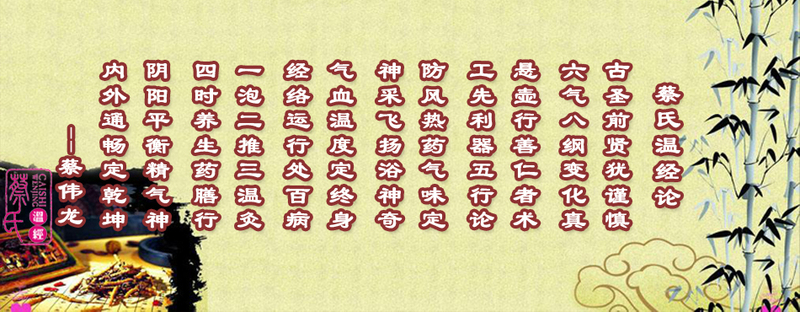 蔡氏温经论
古圣前贤犹谨慎
六气八纲变化真
悬壶行善仁者术
工先利器五行论
防风热药气味定
神采飞扬浴神奇
气血温度定终身
经络运行处百病
一泡二推三温灸
四时养生药膳行
阴阳平衡精气神
内外通畅定乾坤
——蔡伟龙
蔡氏
CAISHI
WENJING
温經